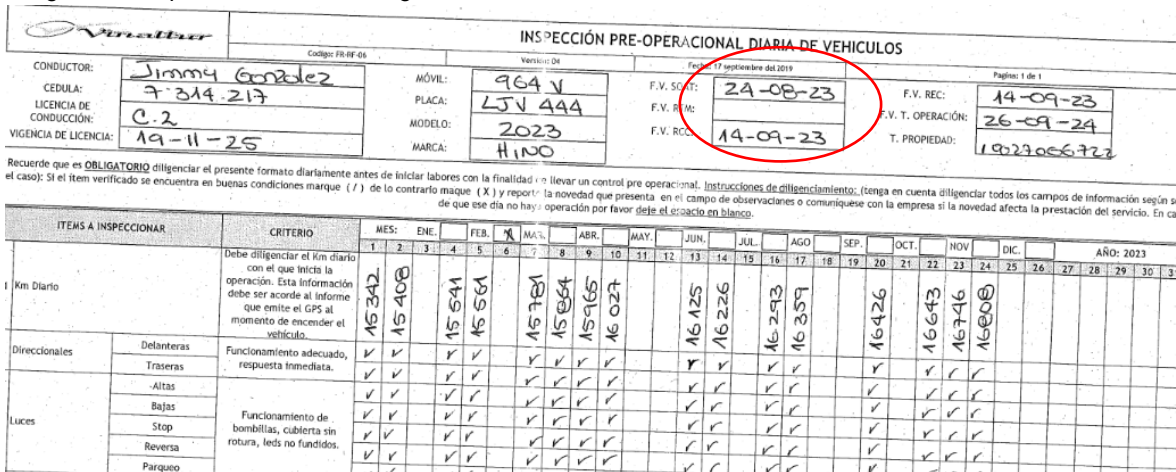 Vinattur
INSPECCIÓN PRE-OPERACIONAL DIARIA DE VEHICULOS
Codigo: FR-RF-06 Version: 04 Fecha: 17 septiembre del 2019 Pagina: 1 de 1
CONDUCTOR: Jimmy Gonzalez
CEDULA: 7.314.217
LICENCIA DE CONDUCCIÓN: C.2
VIGENCIA DE LICENCIA: 19-11-25
MÓVIL: 964 V
PLACA: LJV 444
MODELO: 2023
MARCA: HINO
F.V. SOAT: 24-08-23
F.V. RTM:
F.V. RCC: 14-09-23
F.V. REC: 14-09-23
F.V. T. OPERACIÓN: 26-09-24
T. PROPIEDAD:
Recuerde que es OBLIGATORIO diligenciar el presente formato diariamente antes de iniciar labores con la finalidad de llevar un control pre operacional. Instrucciones de diligenciamiento: (tenga en cuenta diligenciar todos los campos de información según
el caso): Si el ítem verificado se encuentra en buenas condiciones marque ( / ) de lo contrario maque ( X ) y reporte la novedad que presenta en el campo de observaciones o comuníquese con la empresa si la novedad afecta la prestación del servicio. En
de que ese día no haya operación por favor deje el espacio en blanco.
ITEMS A INSPECCIONAR CRITERIO MES: ENE. FEB. X MAR. ABR. MAY. JUN. JUL. AGO SEP. OCT. NOV DIC. AÑO: 2023
1 2 3 4 5 6 7 8 9 10 11 12 13 14 15 16 17 18 19 20 21 22 23 24 25 26 27 28 29 30
Km Diario
Debe diligenciar el Km diario
con el que inicia la
operación. Esta información
debe ser acorde al informe
que emite el GPS al
momento de encender el
vehículo.
15342 15408 15541 15561 15781 15864 15965 16027 16125 16226 16293 16359 16426 16643 16746 16808
Direccionales
Delanteras
Traseras
Funcionamiento adecuado,
respuesta inmediata.
Luces
Altas
Bajas
Stop
Reversa
Parqueo
Funcionamiento de
bombillas, cubierta sin
rotura, leds no fundidos.